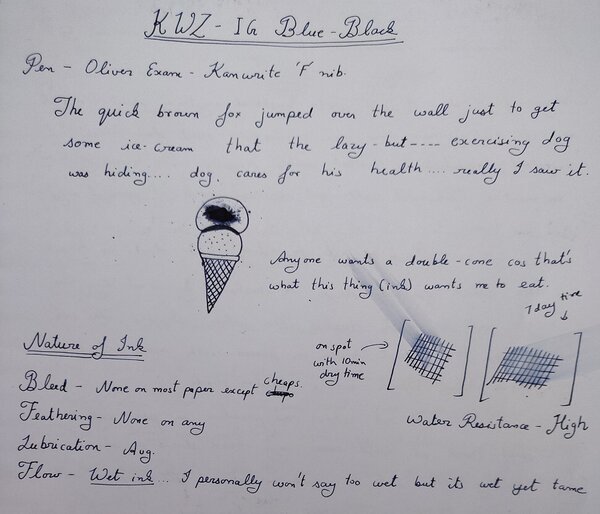 KWZ - IG Blue-Black
Pen - Oliver Exam - Kanwrite 'F' nib.
The quick brown fox jumped over the wall just to get
some ice-cream that the lazy-but---- exercising dog
was hiding.... dog cares for his health .... really I saw it.
Anyone wants a double-cone cos that's
what this thing (ink) wants me to eat.
Nature of Ink
Bleed - None on most paper except cheaps.
Feathering - None on any
Lubrication - Avg.
Flow - Wet ink... I personally won't say too wet but its wet yet tame
on spot
with 10min
dry time
1 day
Water Resistance - High